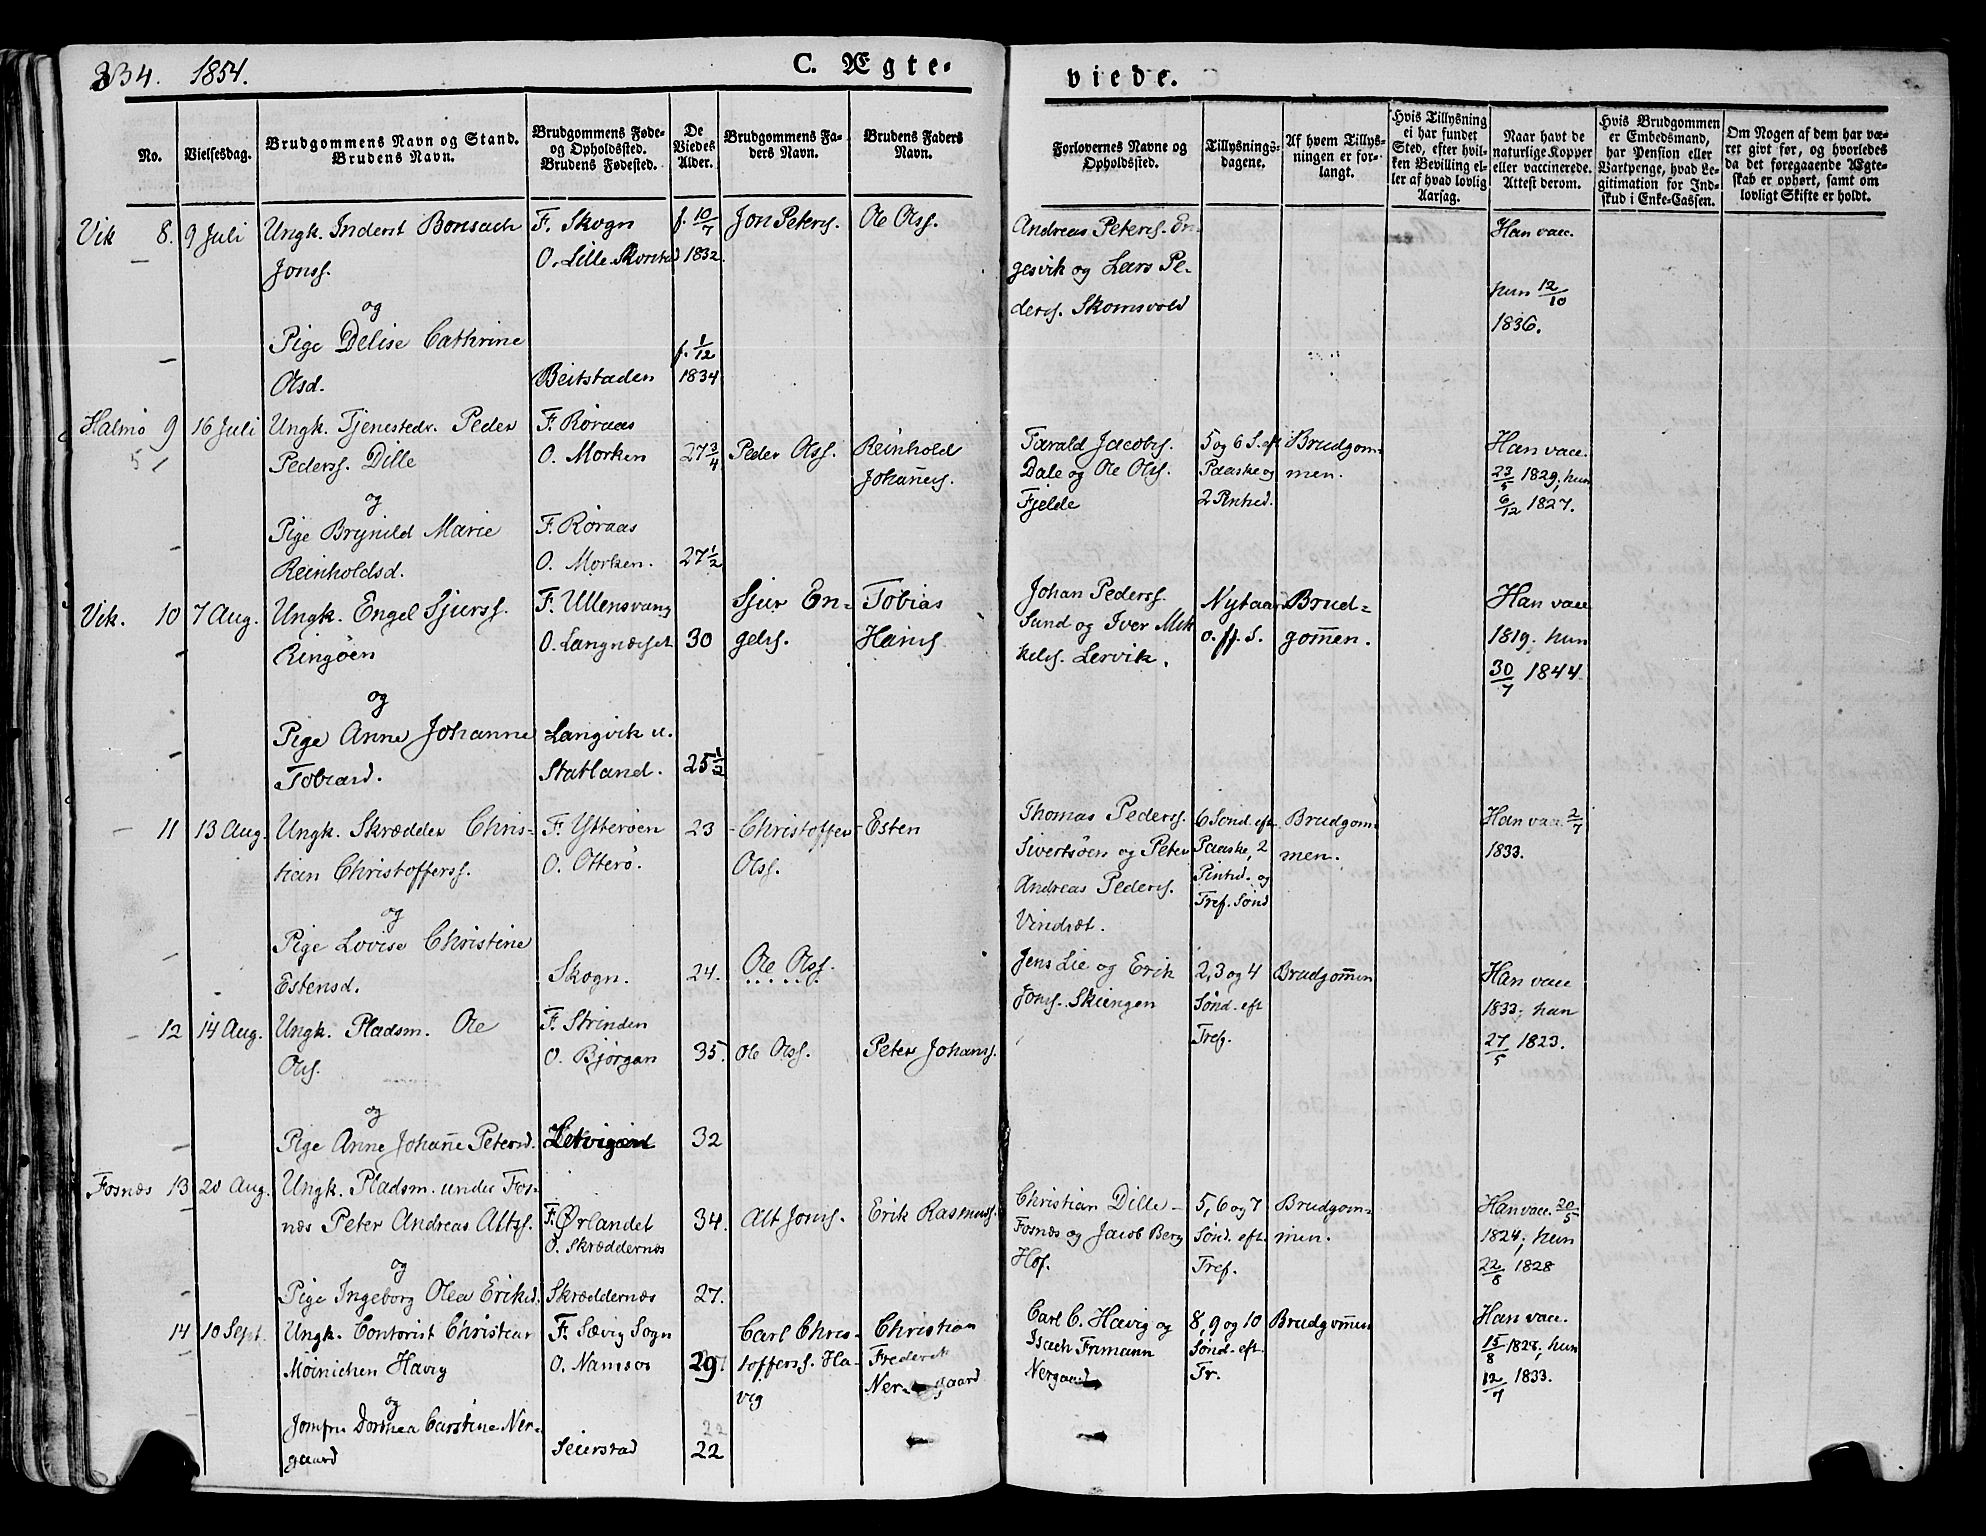 334. 1854. C. Ægte-
viede.
No.
Vielsesdag.
Brudgommens Navn og Stand.
Brudens Navn.
Brudgommens Føde-
og Opholdssted.
Brudens Fødested.
De
Viedes
Alder.
Brudgommens Fa-
ders Navn.
Brudens Faders
Navn.
Forlovernes Navne og
Opholdssted.
Tillysnings-
dagene.
Af hvem Tillys-
ningen er for-
langt.
Hvis Tillysning
ei har fundet
Sted, efter hvil-
ken Bevilling el-
ler af hvad lovlig
Aarsag.
Naar havt de
naturlige Kopper
eller vaccinerede.
Attest derom.
Hvis Brudgommen
er Embedsmand,
har Pension eller
Vartpenge, hvad Le-
gitimation for Ind-
skud i Enke-Cassen.
Om Nogen af dem har væ-
ret gift før, og hvorledes
da det foregaaende Ægte-
skab er ophørt, samt om
lovligt Skifte er holdt.
Vik 8. 9 Juli
Ungk. Inderst Bonsach
Jonss.
og
Pige Delise Cathrine
Olsd.
F. Skogn
O. Lille Skorstad
Beitstaden
f. 10/7
1832.
f. 1/12
1834
Jon Peterss.
Ole Olss.
Andreas Peterss. En-
gesvik og Lars Pe-
derss. Skomsvold
Han vacc.
hun 12/10
1836.
Halmø 9 16 Juli
Ungk. Tjenestedr. Peder
Pederss. Dille
og
Pige Brynild Marie
Reinholdsd.
F. Røraas
O. Morken
F. Røraas
O. Morken.
27 3/4
27 1/2
Peder Olss.
Reinhold
Johañess.
Tarald Jacobss.
Dale og Ole Olss.
Fjelde
5 og 6 S. eft
Paaske og
2 Pintsd.
Brudgom-
men.
Han vacc.
23/5 1829; hun
6/12 1827.
Vik. 10 7 Aug.
Ungk. Engel Sjurss.
Ringøen
og
Pige Anne Johanne
Tobiasd.
F. Ullensvang
O. Langnæsset
Langvik u.
Statland.
30
25 1/2
Sjur En-
gelss.
Tobias
Hanss.
Johan Pederss.
Sund og Iver Mik
kelss. Lervik.
Nytaar
o. ff. S.
Brud-
gom̃en.
Han vacc
1819. hun
30/7 1844.
11 13 Aug.
Ungk. Skrædder Chris-
tian Christofferss.
og
Pige Lovise Christine
Estensd.
F. Ytterøen
O. Otterø.
Skogn.
23
24.
Christoffer
Olss.
Esten
Ole Olss.
Thomas Pederss.
Sivertsøen og Peter
Andreas Pederss.
Vindsæt.
6 Sønd. eft
Paaske, 2
Pintsd. og
Tref. Sønd
Brudgom-
men.
Han vacc. 2/7
1833.
12 14 Aug.
Ungk. Pladsm. Ole
Olss.
og
Pige Anne Johañe Petersd.
F. Strinden
O. Bjørgan
35.
32
Ole Olss.
Peter Johanss.
Jens Lie og Erik
Jonss. Skiengen
2, 3 og 4
Sønd. eft
Tref.
Brudgom̃en
Han vacc
1833; hun
27/5 1823.
Fosnæs 13 20 Aug.
Ungk. Pladsm. under Fos-
næs Peter Andreas Altss.
og
Pige Ingeborg Olea Eriksd.
F. Ørlandet
O. Skræddernæs
Skræddernæs
34.
27.
Alt Jonss.
Erik Rasmuss.
Christian Dille-
Fosnæs og Jacob Berg
Hof.
5, 6 og 7
Sønd. eft.
Tref.
Brudgom-
men.
Han vacc. 20/5
1824; hun
22/8 1828
14 10 Sept.
Ungk. Contorist Christian
Møinichen Havig
og
Jomfru Dorthea Carstine Ner-
gaard
F. Sævig Sogn
O. Namsos
Seierstad
29
22
Carl Chris-
tofferss. Ha-
vig
Christian
Frederik
Nergaard
Carl C. Havig og
Isach Frimann
Nergaard
8, 9 og 10
Sønd. eft.
Tr.
Brudgom̃en
Han vacc.
15/8 1828; hun
12/7 1833.